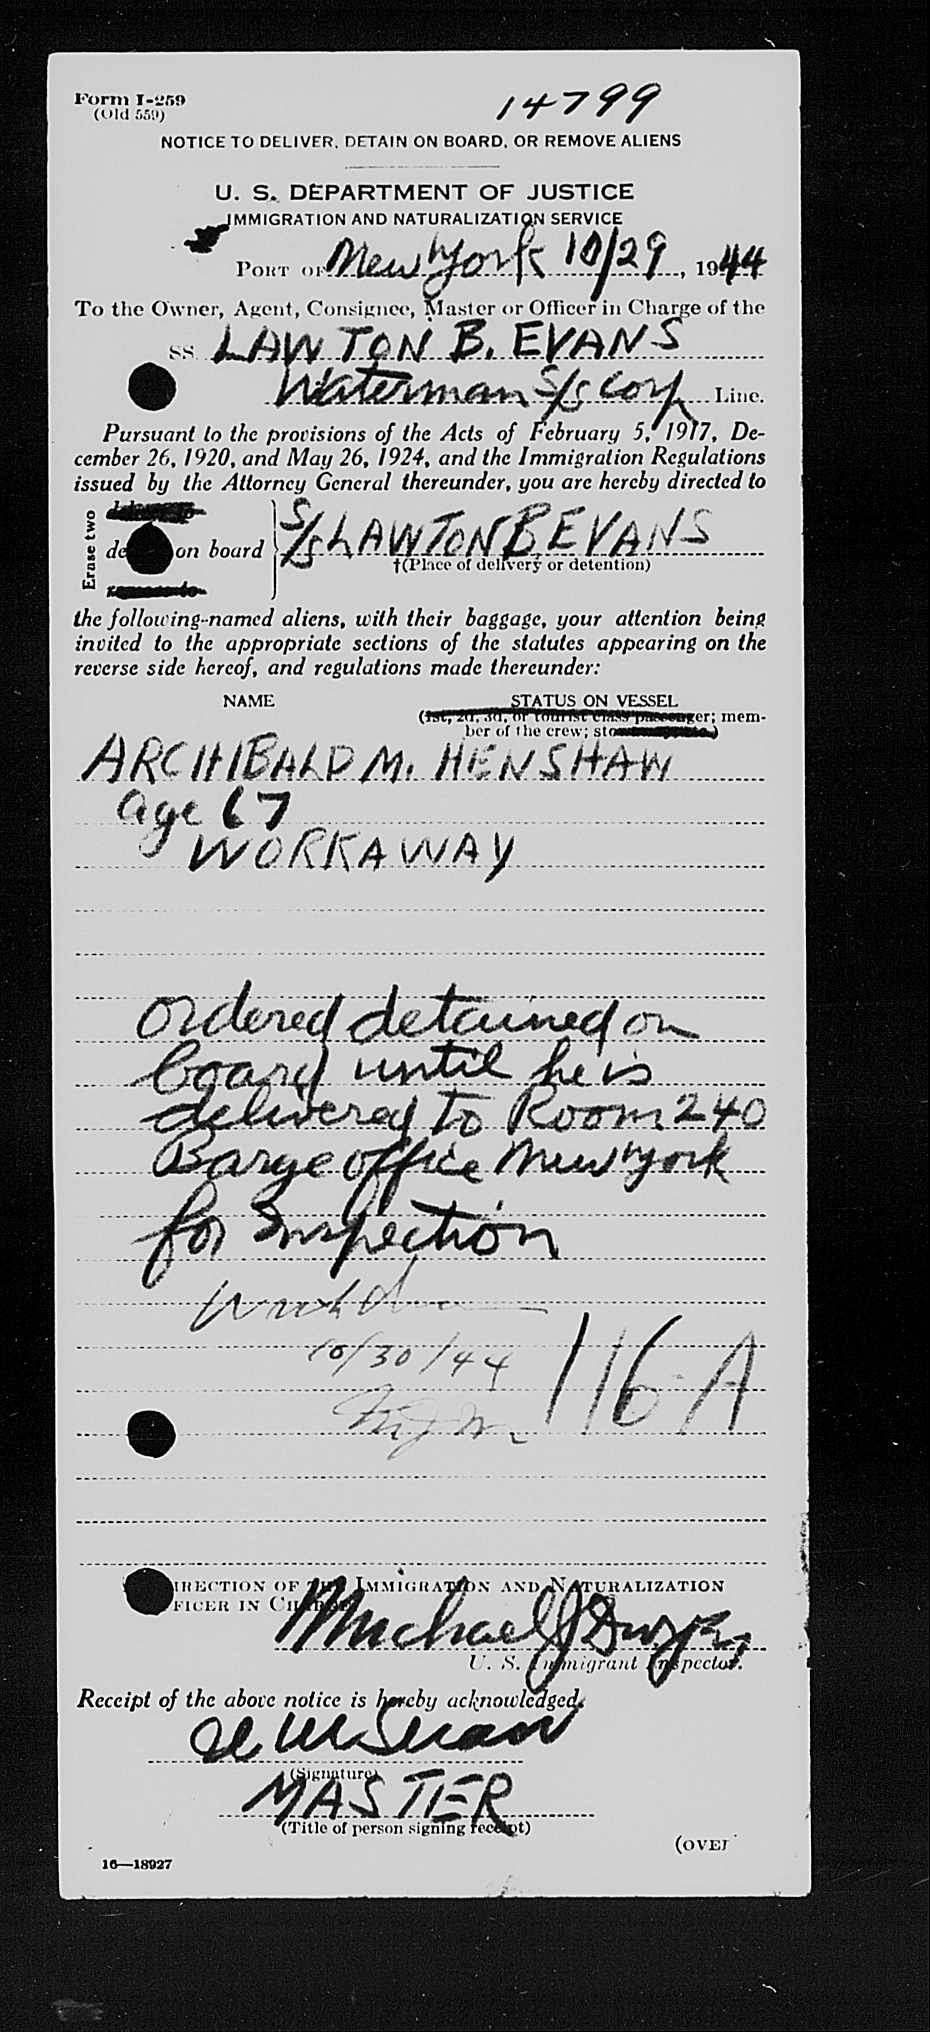 Form I-259
(Old 559)
14799
NOTICE TO DELIVER, DETAIN ON BOARD, OR REMOVE ALIENS
U. S. DEPARTMENT OF JUSTICE
IMMIGRATION AND NATURALIZATION SERVICE
PORT OF New York 10/29, 1944
To the Owner, Agent, Consignee, Master or Officer in Charge of the
SS. LAWTON B. EVANS
Waterman S/S Corp Line.
Pursuant to the provisions of the Acts of February 5, 1917, De-
cember 26, 1920, and May 26, 1924, and the Immigration Regulations
issued by the Attorney General thereunder, you are hereby directed to
Erase two
on board S/S LAWTON B. EVANS
†(Place of delivery or detention)
the following-named aliens, with their baggage, your attention being
invited to the appropriate sections of the statutes appearing on the
reverse side hereof, and regulations made thereunder:
NAME STATUS ON VESSEL
(1st, 2d, 3d, or tourist class passenger; mem-
ber of the crew;
ARCHIBALD M. HENSHAW
age 67
WORKAWAY
Ordered detained on
board until he is
delivered to Room 240
Barge office New York
for Inspection
10/30/44
116-A
DIRECTION OF THE IMMIGRATION AND NATURALIZATION
OFFICER IN CHARGE
Michael J.
U. S. Immigrant Inspector.
Receipt of the above notice is hereby acknowledged.
(Signature)
MASTER
(Title of person signing receipt)
(OVER
16—18927